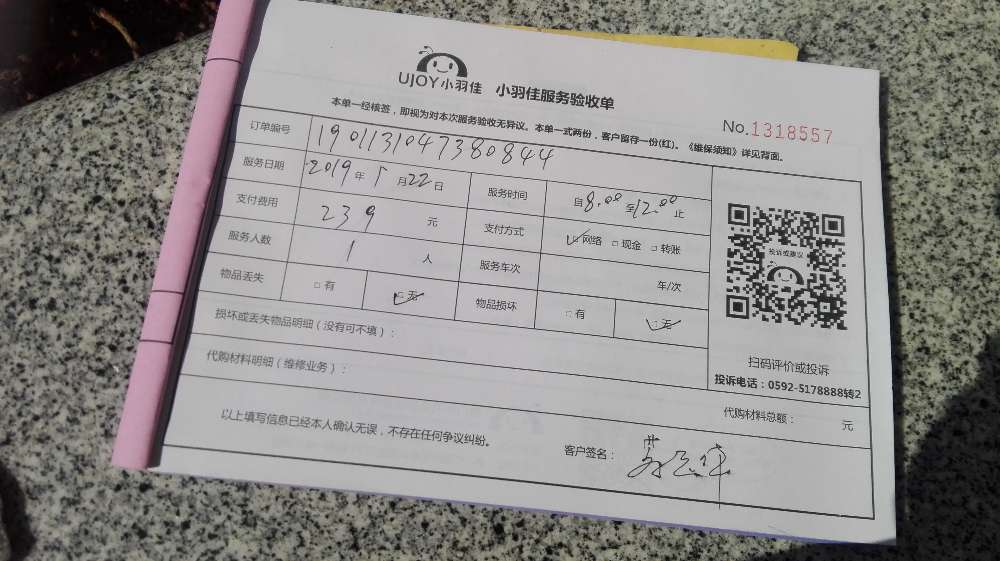 UJOY小羽佳 小羽佳服务验收单
本单一经核签，即视为对本次服务验收无异议。本单一式两份，客户留存一份(红)。《维保须知》详见背面。
No.1318557
订单编号 1901131047380844
服务日期 2019年1月22日 服务时间 自8:00至12:00止
支付费用 239元 支付方式 网络 现金 转账
服务人数 1人 服务车次 车/次
物品丢失 有 无 物品损坏 有 无
损坏或丢失物品明细（没有可不填）：
代购材料明细（维修业务）：
投诉或建议
扫码评价或投诉
投诉电话：0592-5178888转2
代购材料总额： 元
以上填写信息已经本人确认无误，不存在任何争议纠纷。
客户签名：